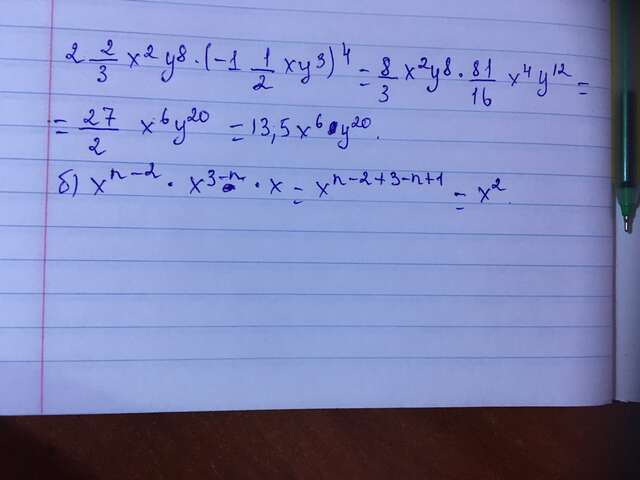 2 2/3 x²y⁸ · (-1 1/2 xy³)⁴ = 8/3 x²y⁸ · 81/16 x⁴y¹² =
= 27/2 x⁶y²⁰ = 13,5x⁶y²⁰.
б) xⁿ⁻² · x³⁻ⁿ · x = xⁿ⁻²⁺³⁻ⁿ⁺¹ = x².